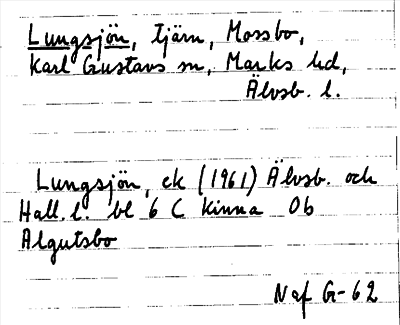 Lungsjön, tjärn, Mossbo,
Karl Gustavs sn, Marks hd,
Älvsb. l.
Lungsjön, ek (1961) Älvsb. och
Hall. l. bl 6 C Kinna Ob
Algutsbo
Naf G-62